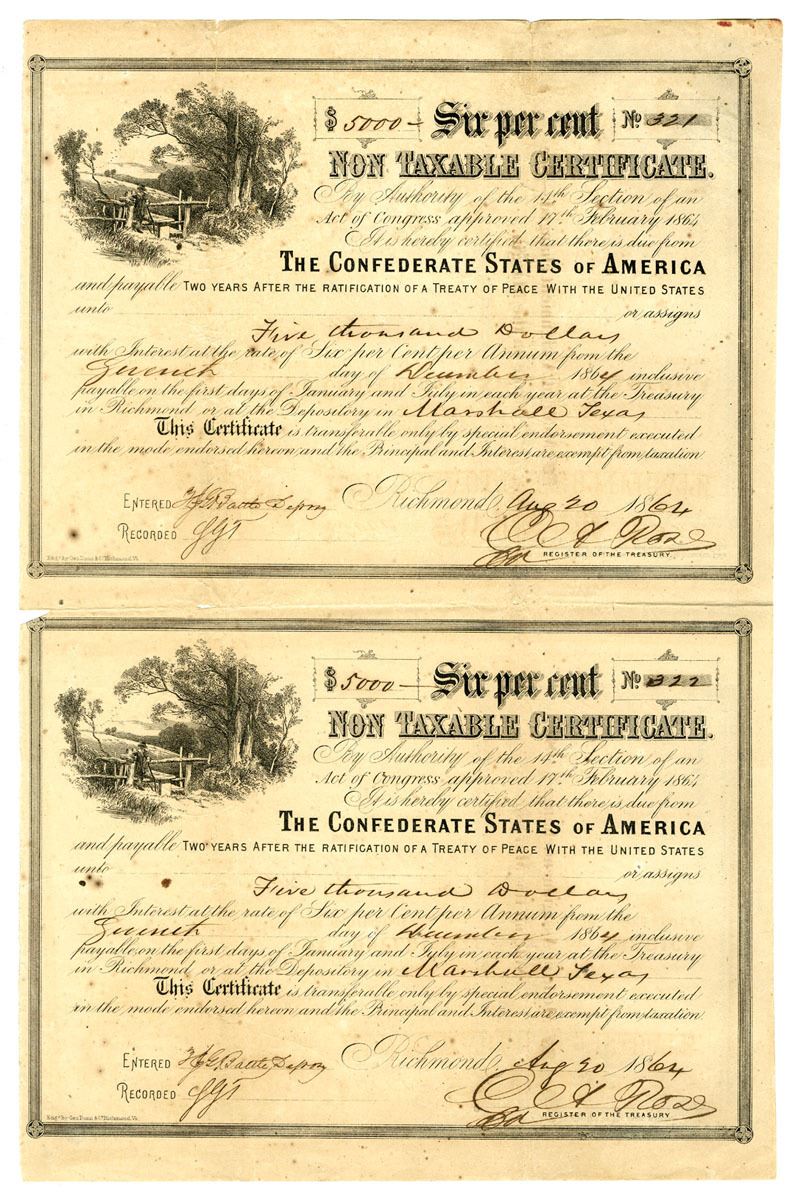 $ 5000 — Six per cent No 321
NON TAXABLE CERTIFICATE.
By Authority of the 14th Section of an
Act of Congress approved 17th February 1864
It is hereby certified that there is due from
THE CONFEDERATE STATES OF AMERICA
and payable TWO YEARS AFTER THE RATIFICATION OF A TREATY OF PEACE WITH THE UNITED STATES
unto or assigns
Five thousand Dollars
with Interest at the rate of Six per Cent per Annum from the
day of December 1864 inclusive
payable on the first days of January and July in each year at the Treasury
in Richmond or at the Depository in Marshall Texas
This Certificate is transferable only by special endorsement executed
in the mode endorsed hereon and the Principal and Interest are exempt from taxation.
Richmond, Aug 20 1864
ENTERED
RECORDED
REGISTER OF THE TREASURY.
Eng'd by Geo. Dunn & Co. Richmond, Va.
$ 5000 — Six per cent No 322
NON TAXABLE CERTIFICATE.
By Authority of the 14th Section of an
Act of Congress approved 17th February 1864
It is hereby certified that there is due from
THE CONFEDERATE STATES OF AMERICA
and payable TWO YEARS AFTER THE RATIFICATION OF A TREATY OF PEACE WITH THE UNITED STATES
unto or assigns
Five thousand Dollars
with Interest at the rate of Six per Cent per Annum from the
day of December 1864 inclusive
payable on the first days of January and July in each year at the Treasury
in Richmond or at the Depository in Marshall Texas
This Certificate is transferable only by special endorsement executed
in the mode endorsed hereon and the Principal and Interest are exempt from taxation.
Richmond, Aug 20 1864
ENTERED
RECORDED
REGISTER OF THE TREASURY
Eng'd by Geo. Dunn & Co. Richmond, Va.